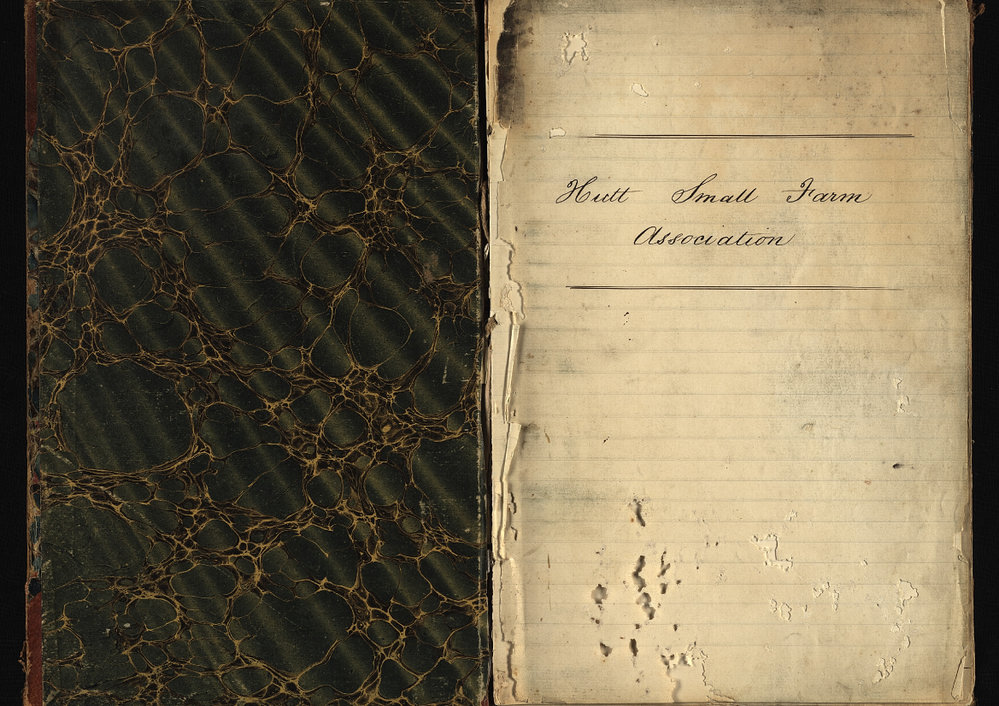 Hutt Small Farm
Association